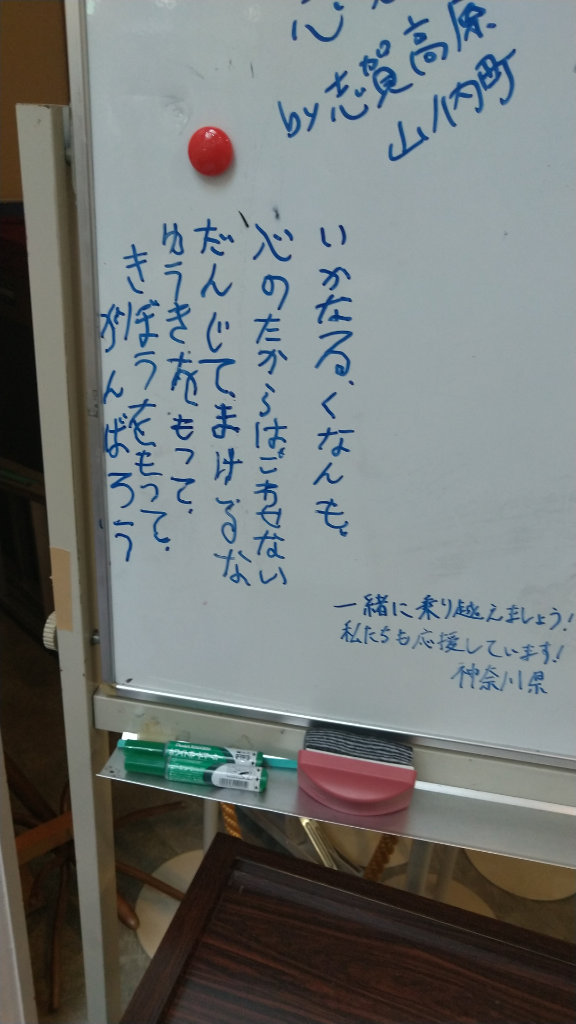 心
by志賀高原
山ノ内町
いかなる、くなんも。
心のたからはこわせない
だんじて、まけるな
ゆうきをもって、
きぼうをもって、
がんばろう
一緒に乗り越えましょう!
私たちも応援しています!
神奈川県
ホワイトボードマーカー